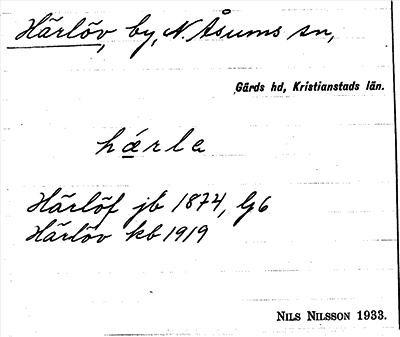 Härlöv, by, N. Åsums sn,
Gärds hd, Kristianstads län.
há̱rla
Härlöf jb 1874, G6
Härlöv kb 1919
NILS NILSSON 1933.